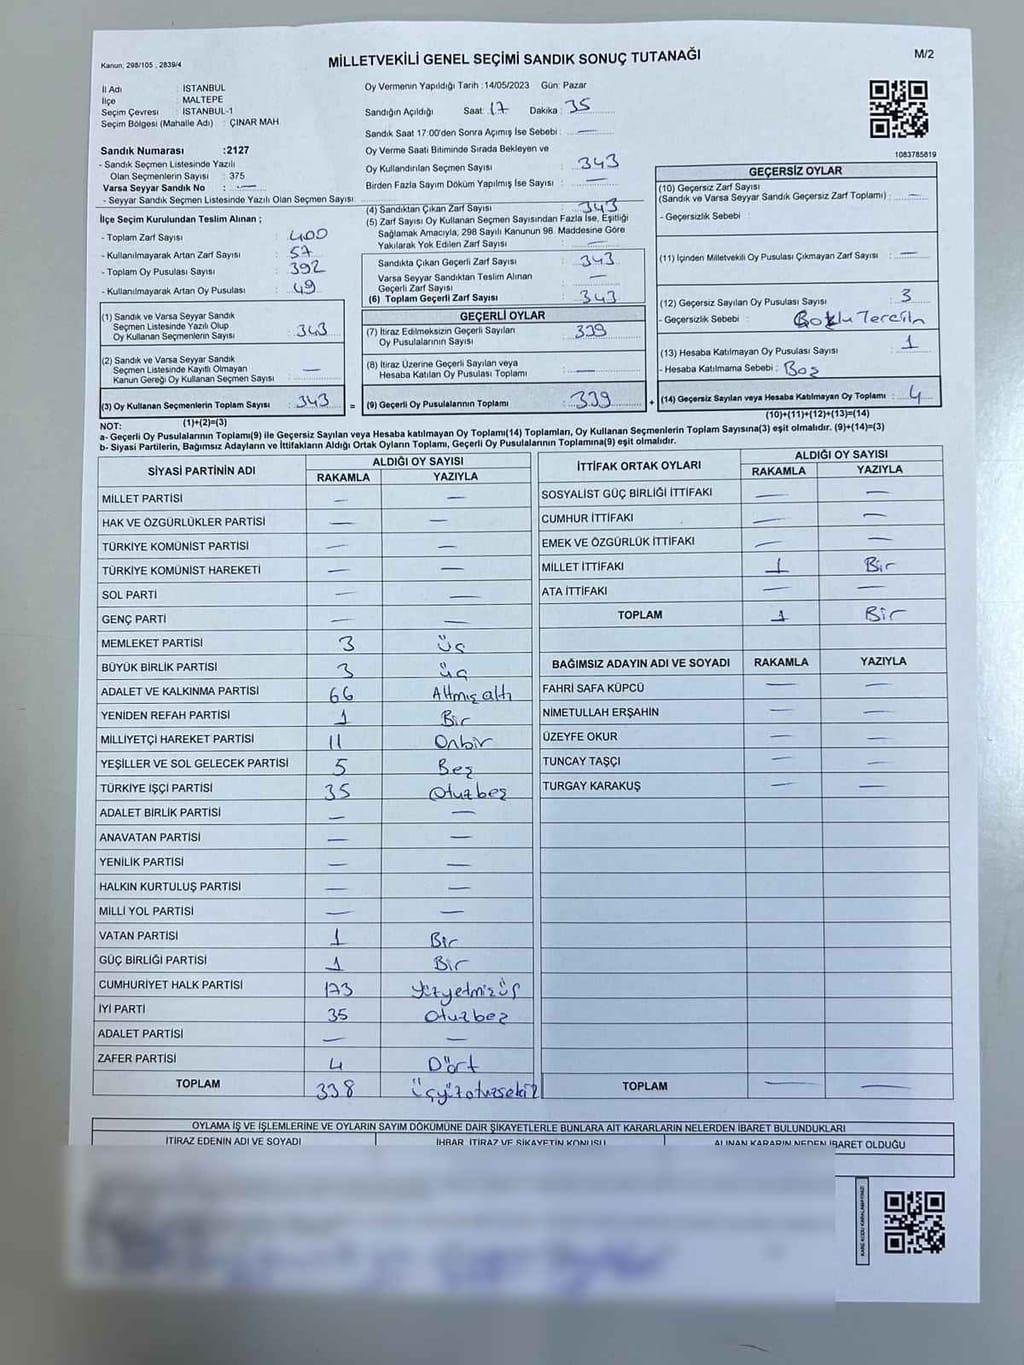 Kanun, 298/105 , 2839/4
MİLLETVEKİLİ GENEL SEÇİMİ SANDIK SONUÇ TUTANAĞI
M/2
İl Adı : İSTANBUL
İlçe : MALTEPE
Seçim Çevresi : İSTANBUL-1
Seçim Bölgesi (Mahalle Adı) : ÇINAR MAH
Sandık Numarası :2127
- Sandık Seçmen Listesinde Yazılı
Olan Seçmenlerin Sayısı : 375
Varsa Seyyar Sandık No : —
- Seyyar Sandık Seçmen Listesinde Yazılı Olan Seçmen Sayısı:
İlçe Seçim Kurulundan Teslim Alınan ;
- Toplam Zarf Sayısı : 400
- Kullanılmayarak Artan Zarf Sayısı : 57
- Toplam Oy Pusulası Sayısı : 392
- Kullanılmayarak Artan Oy Pusulası : 49
(1) Sandık ve Varsa Seyyar Sandık
Seçmen Listesinde Yazılı Olup
Oy Kullanan Seçmenlerin Sayısı : 343
(2) Sandık ve Varsa Seyyar Sandık
Seçmen Listesinde Kayıtlı Olmayan
Kanun Gereği Oy Kullanan Seçmen Sayısı : —
(3) Oy Kullanan Seçmenlerin Toplam Sayısı : 343
(1)+(2)=(3)
Oy Vermenin Yapıldığı Tarih :14/05/2023 Gün: Pazar
Sandığın Açıldığı Saat: 17 Dakika : 35
Sandık Saat 17:00'den Sonra Açımış İse Sebebi : —
Oy Verme Saati Bitiminde Sırada Bekleyen ve
Oy Kullandırılan Seçmen Sayısı : 343
Birden Fazla Sayım Döküm Yapılmış İse Sayısı : —
(4) Sandıktan Çıkan Zarf Sayısı : 343
(5) Zarf Sayısı Oy Kullanan Seçmen Sayısından Fazla İse, Eşitliği
Sağlamak Amacıyla; 298 Sayılı Kanunun 98. Maddesine Göre
Yakılarak Yok Edilen Zarf Sayısı : —
Sandıkta Çıkan Geçerli Zarf Sayısı : 343
Varsa Seyyar Sandıktan Teslim Alınan
Geçerli Zarf Sayısı : —
(6) Toplam Geçerli Zarf Sayısı : 343
GEÇERLİ OYLAR
(7) İtiraz Edilmeksizin Geçerli Sayılan
Oy Pusulalarının Sayısı : 339
(8) İtiraz Üzerine Geçerli Sayılan veya
Hesaba Katılan Oy Pusulası Toplamı : —
= (9) Geçerli Oy Pusulalarının Toplamı : 339 +
1083785819
GEÇERSİZ OYLAR
(10) Geçersiz Zarf Sayısı
(Sandık ve Varsa Seyyar Sandık Geçersiz Zarf Toplamı) : —
- Geçersizlik Sebebi :
(11) İçinden Milletvekili Oy Pusulası Çıkmayan Zarf Sayısı : —
(12) Geçersiz Sayılan Oy Pusulası Sayısı : 3
- Geçersizlik Sebebi :
(13) Hesaba Katılmayan Oy Pusulası Sayısı : 1
- Hesaba Katılmama Sebebi : Boş
(14) Geçersiz Sayılan veya Hesaba Katılmayan Oy Toplamı : 4
(10)+(11)+(12)+(13)=(14)
NOT:
a- Geçerli Oy Pusulalarının Toplamı(9) ile Geçersiz Sayılan veya Hesaba katılmayan Oy Toplamı(14) Toplamları, Oy Kullanan Seçmenlerin Toplam Sayısına(3) eşit olmalıdır. (9)+(14)=(3)
b- Siyasi Partilerin, Bağımsız Adayların ve İttifakların Aldığı Ortak Oyların Toplamı, Geçerli Oy Pusulalarının Toplamına(9) eşit olmalıdır.
SİYASİ PARTİNİN ADI ALDIĞI OY SAYISI
RAKAMLA YAZIYLA
MİLLET PARTİSİ — —
HAK VE ÖZGÜRLÜKLER PARTİSİ — —
TÜRKİYE KOMÜNİST PARTİSİ — —
TÜRKİYE KOMÜNİST HAREKETİ — —
SOL PARTİ — —
GENÇ PARTİ — —
MEMLEKET PARTİSİ 3 üç
BÜYÜK BİRLİK PARTİSİ 3 üç
ADALET VE KALKINMA PARTİSİ 66 Altmış altı
YENİDEN REFAH PARTİSİ 1 Bir
MİLLİYETÇİ HAREKET PARTİSİ 11 Onbir
YEŞİLLER VE SOL GELECEK PARTİSİ 5 Beş
TÜRKİYE İŞÇİ PARTİSİ 35 Otuzbeş
ADALET BİRLİK PARTİSİ — —
ANAVATAN PARTİSİ — —
YENİLİK PARTİSİ — —
HALKIN KURTULUŞ PARTİSİ — —
MİLLİ YOL PARTİSİ — —
VATAN PARTİSİ 1 Bir
GÜÇ BİRLİĞİ PARTİSİ 1 Bir
CUMHURİYET HALK PARTİSİ 173 Yüzyetmişüç
İYİ PARTİ 35 Otuzbeş
ADALET PARTİSİ — —
ZAFER PARTİSİ 4 Dört
TOPLAM 338 Üçyüzotuzsekiz
İTTİFAK ORTAK OYLARI ALDIĞI OY SAYISI
RAKAMLA YAZIYLA
SOSYALİST GÜÇ BİRLİĞİ İTTİFAKI — —
CUMHUR İTTİFAKI — —
EMEK VE ÖZGÜRLÜK İTTİFAKI — —
MİLLET İTTİFAKI 1 Bir
ATA İTTİFAKI — —
TOPLAM 1 Bir
BAĞIMSIZ ADAYIN ADI VE SOYADI RAKAMLA YAZIYLA
FAHRİ SAFA KÜPCÜ — —
NİMETULLAH ERŞAHİN — —
ÜZEYFE OKUR — —
TUNCAY TAŞÇI — —
TURGAY KARAKUŞ — —
TOPLAM — —
OYLAMA İŞ VE İŞLEMLERİNE VE OYLARIN SAYIM DÖKÜMÜNE DAİR ŞİKAYETLERLE BUNLARA AİT KARARLARIN NELERDEN İBARET BULUNDUKLARI
İTİRAZ EDENİN ADI VE SOYADI İHBAR, İTİRAZ VE ŞİKAYETİN KONUSU ALINAN KARARIN NEDEN İBARET OLDUĞU